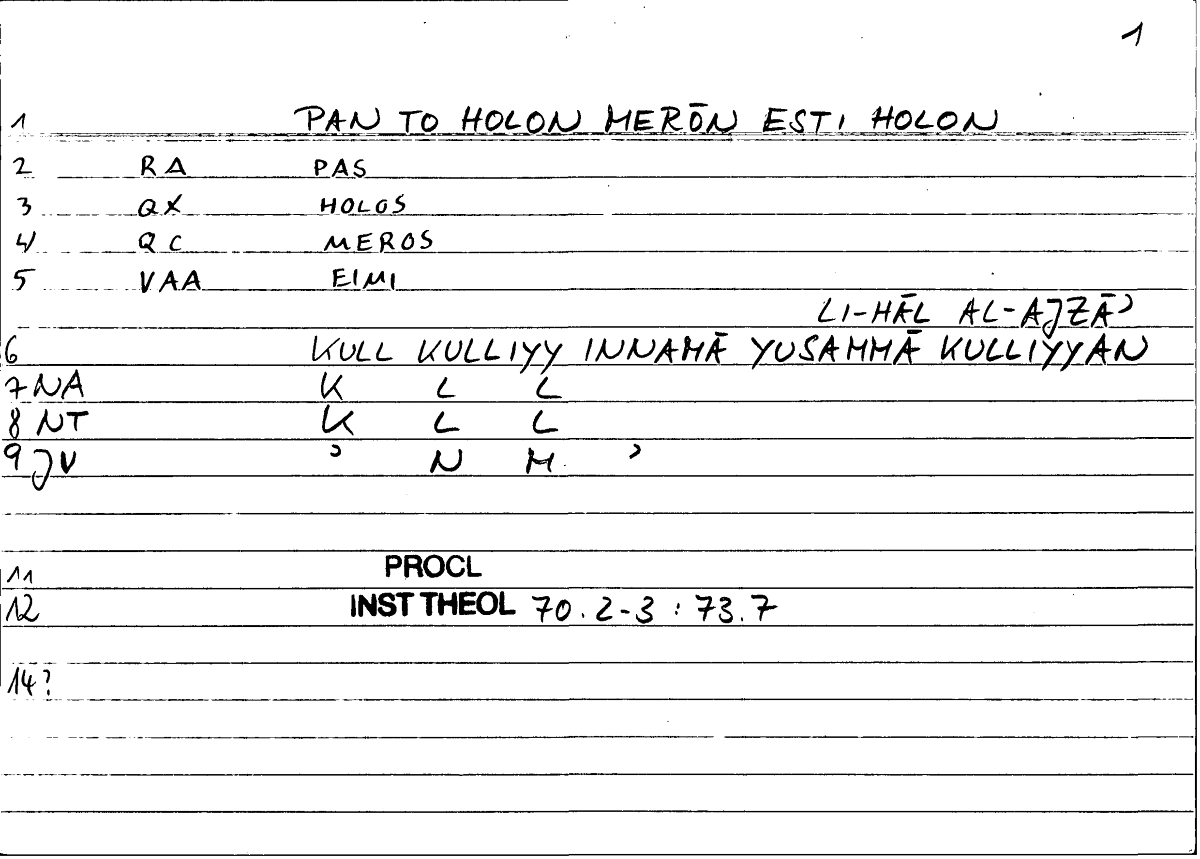 1
1 PAN TO HOLON MERŌN ESTI HOLON
2 RA PAS
3 QX HOLOS
4 QC MEROS
5 VAA EIMI
LI-HĀL AL-AJZĀʾ
6 KULL KULLIYY INNAMĀ YUSAMMĀ KULLIYYAN
7 NA K L L
8 NT K L L
9 JV ʾ N M ʾ
11 PROCL
12 INST THEOL 70.2-3 : 73.7
14?